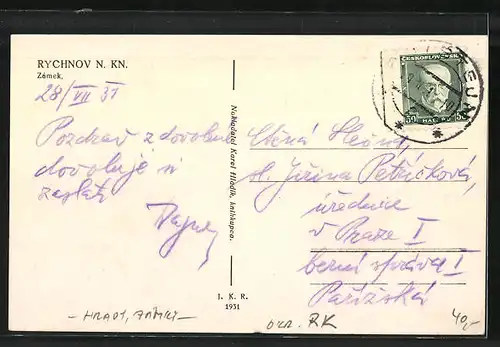 RYCHNOV N. KN.
Zámek.
28/VII 31
Pozdrav z dovolené
dovoluje si
zaslati
Nakladatel Karel Hladík, knihkupec.
I. K. R.
1931
ČESKOSLOVENSKO
50 HAL 50
Ctěná slečna
sl. Jiřina Petříčková,
úřednice
v Praze I
berní správa I
Pařížská
-HRADY, ZÁMKY-
OKR. RK
40,-